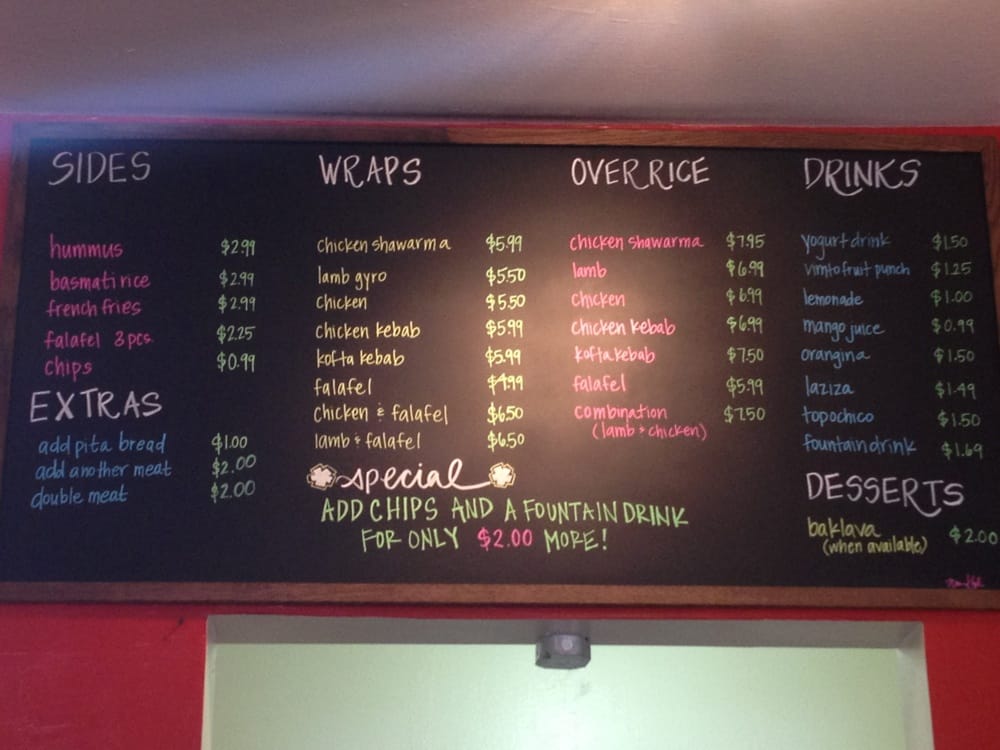 SIDES
hummus $2.99
basmati rice $2.99
french fries $2.99
falafel 3 pcs. $2.25
chips $0.99
EXTRAS
add pita bread $1.00
add another meat $2.00
double meat $2.00
WRAPS
chicken shawarma $5.99
lamb gyro $5.50
chicken $5.50
chicken kebab $5.99
kofta kebab $5.99
falafel $4.99
chicken & falafel $6.50
lamb & falafel $6.50
special
ADD CHIPS AND A FOUNTAIN DRINK
FOR ONLY $2.00 MORE!
OVER RICE
chicken shawarma $7.95
lamb $6.99
chicken $6.99
chicken kebab $6.99
kofta kebab $7.50
falafel $5.99
combination $7.50
(lamb & chicken)
DRINKS
yogurt drink $1.50
vimto fruit punch $1.25
lemonade $1.00
mango juice $0.99
orangina $1.50
laziza $1.49
topochico $1.50
fountain drink $1.69
DESSERTS
baklava $2.00
(when available)